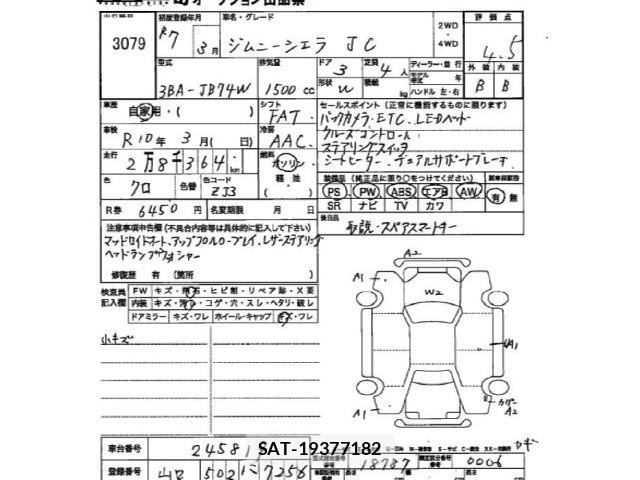 3079
初度登録年月 車名・グレード
R7 3月 ジムニーシエラ JC
2WD
4WD
評価点
4.5
型式 排気量 ドア 定員 ディーラー・並行 外装 内装
3BA-JB74W 1500cc 3 4人
形状 W 積載 kg
モデル年式 年
ハンドル 左・右
B B
車歴 自家用・( )
シフト FAT
セールスポイント (正常に機能するものに限ります)
バックカメラ・ETC. LEDヘッド
クルーズコントロール
ステアリングスイッチ
シートヒーター. デュアルサポートブレーキ
車検 R10年3月( 日)
冷房 AAC
走行 2万8千364km
燃料 ガソリン
軽油
( )
色 クロ 色替 色コード ZJ3
装備品 (純正品に限り○をつけてください)
PS PW ABS エアB AW
SR ナビ TV カワ
有 無
R券 6450円 名変期限 月 日
後日品
取説・スペアスマートキー
注意事項申告欄 (不具合内容等は具体的に記入して下さい)
ヘッドランプウォシャー
修復歴 有 (箇所 )
検査員記入欄
FW キズ・飛石・ヒビ割・リペア跡・X要
内装 キズ・汚れ・コゲ・穴・スレ・ヘタリ・破レ
ドアミラー キズ・ワレ ホイール・キャップ キズ・ワレ
小キズ
A2
A1
W2
A1
A1
A2
車台番号 24581
SAT-19377182
18787
0006
登録番号
502
7256